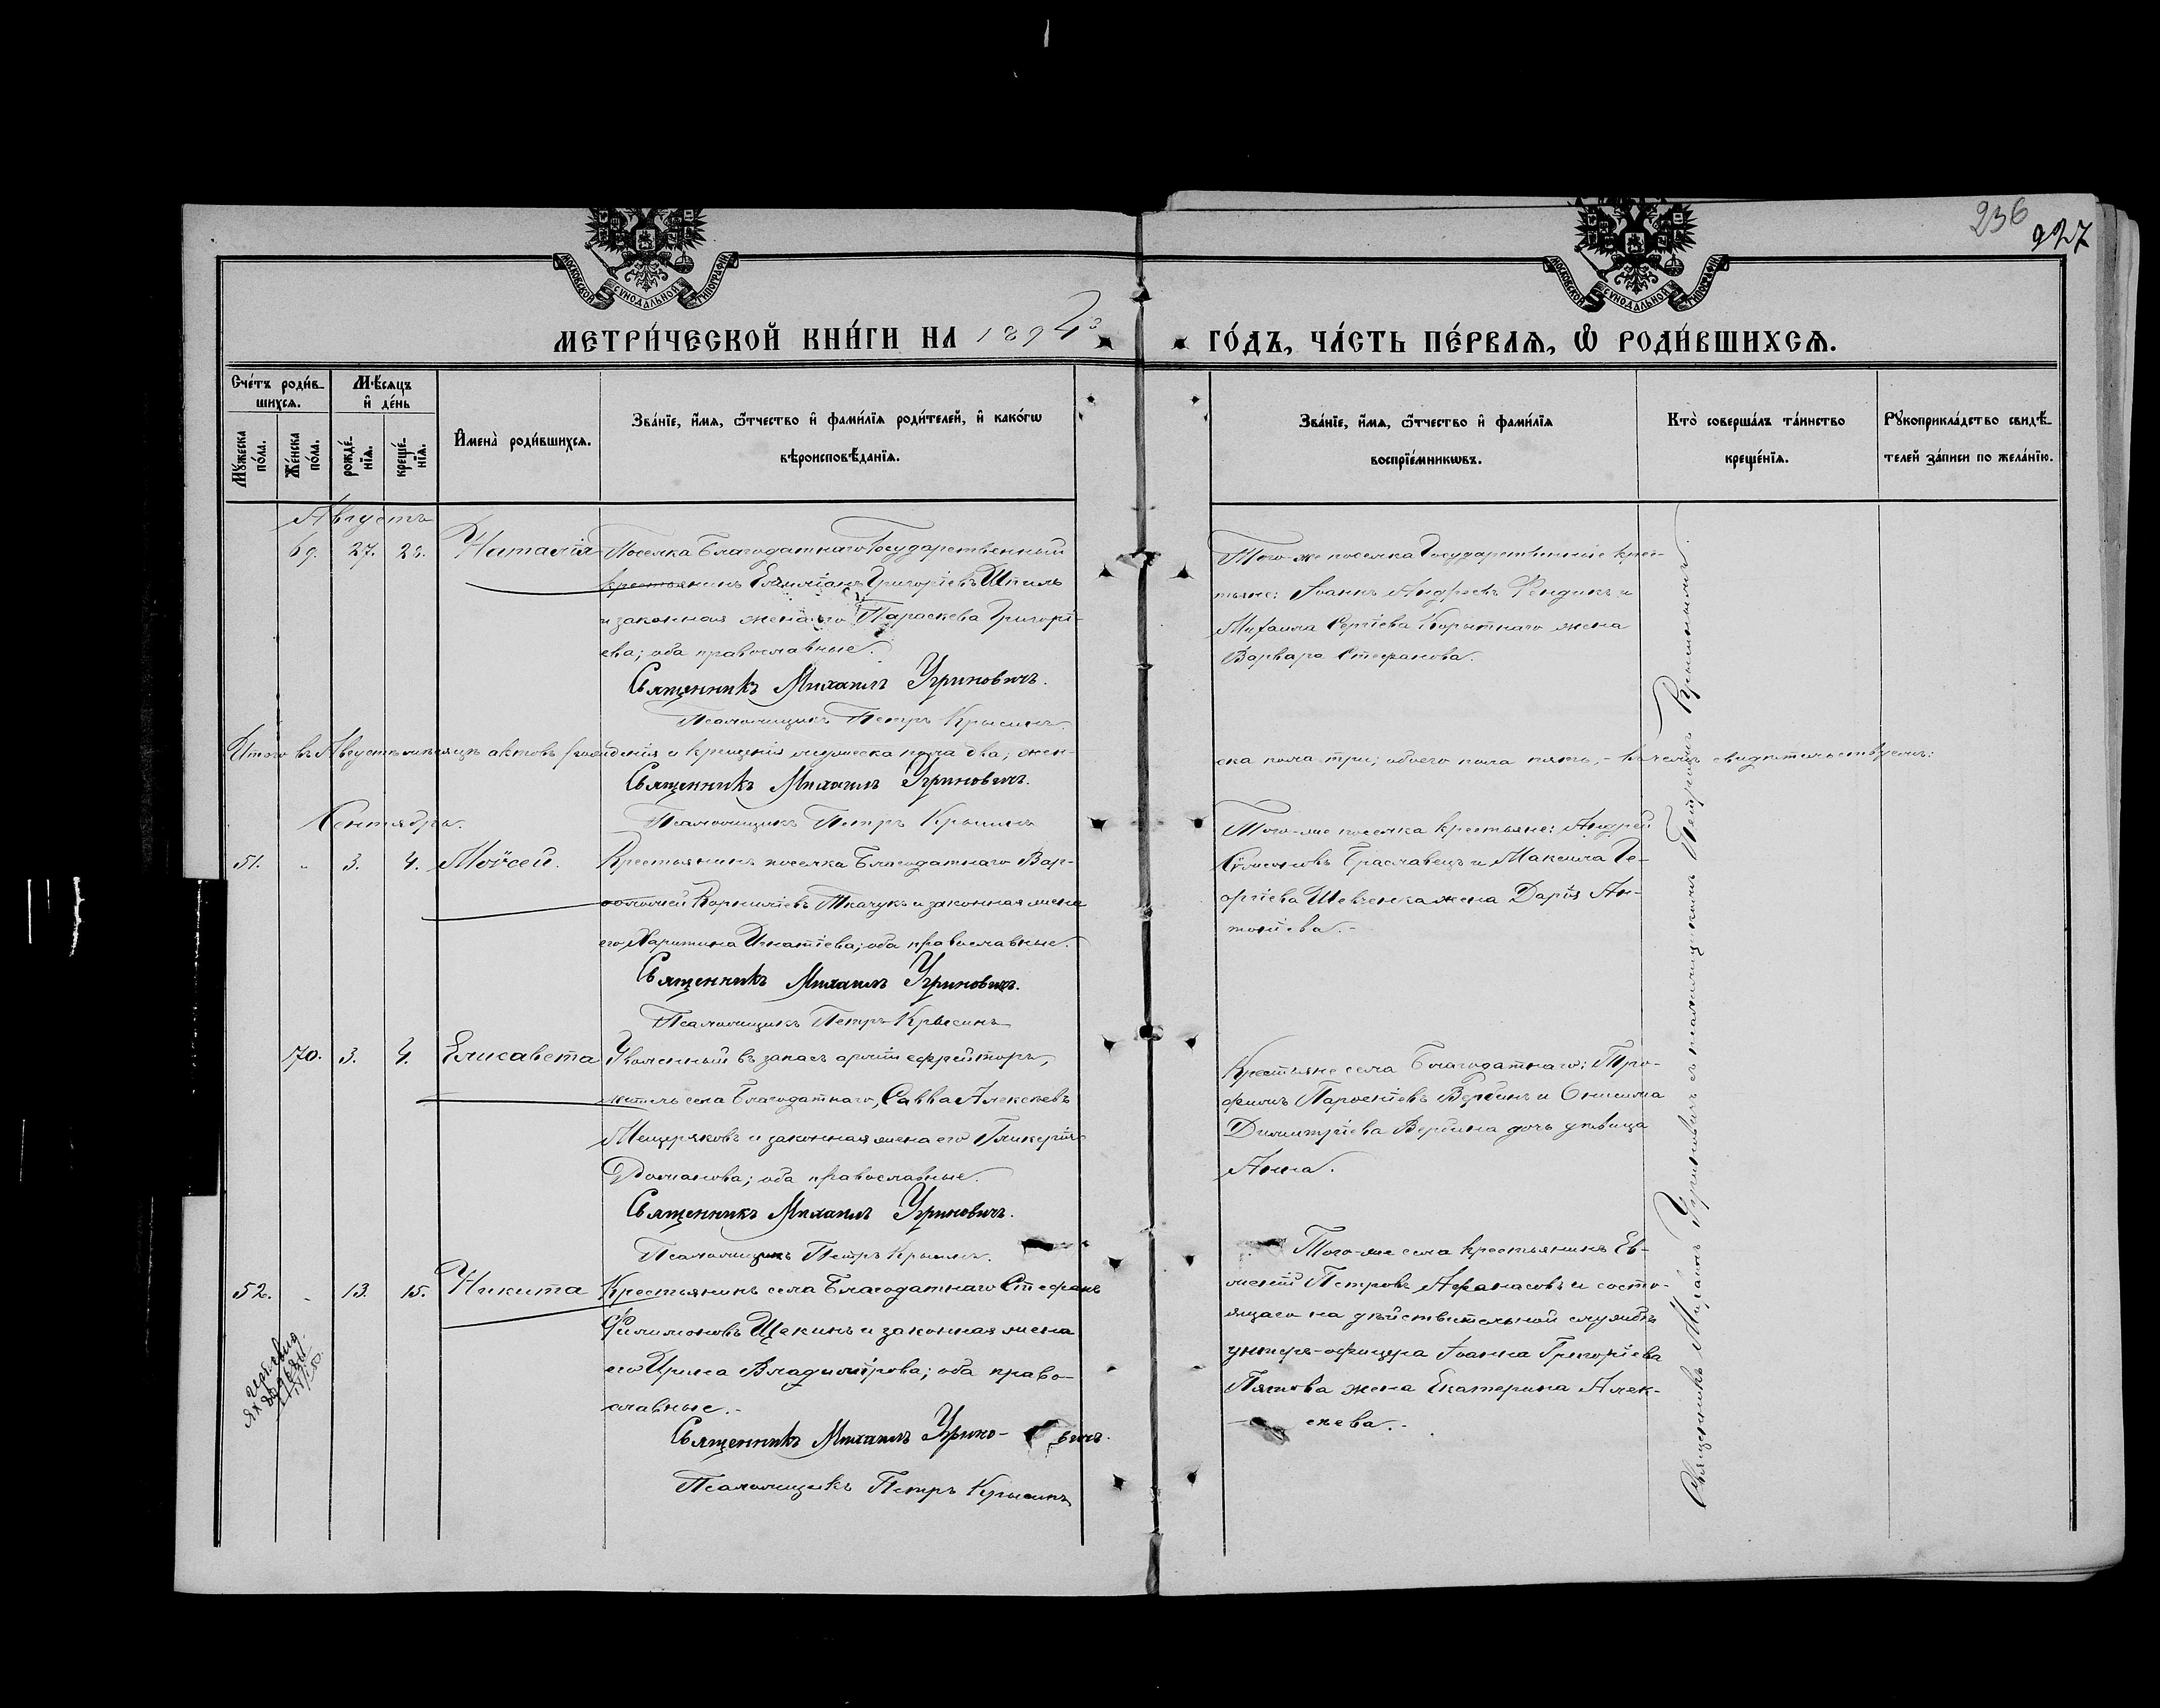 236
927
МОСКОВСКОЙ СУНОДАЛЬНОЙ ТИПОГРАФІИ
МОСКОВСКОЙ СУНОДАЛЬНОЙ ТИПОГРАФІИ
МЕТРИ́ЧЕСКОЙ КНИ́ГИ НА 189
ГО́ДЪ, ЧА́СТЬ ПЕ́РВАЯ, Ѡ РОДИ́ВШИХСЯ.
Сче́тъ роди́в-
шихся.
Мѣ́сяцъ
и де́нь
Мꙋ́жеска по́ла.
Же́нска по́ла.
рожде́-
нїя.
креще́-
нїя.
Имена̀ роди́вшихся.
Зва́нїе, и́мя, ѻ́тчество и фами́лїя роди́телей, и како́гѡ
вѣроисповѣ́данїя.
Зва́нїе, и́мя, ѻ́тчество и фами́лїя
воспрїе́мникѡвъ.
Кто̀ соверша́лъ та́инство
креще́нїя.
Рꙋкоприкла́дство свидѣ́-
телей за́писи по жела́нїю.
Августъ
69. 27. 28. Наталія Поселка Благодатнаго Государственный
крестьянинъ Емиліанъ Григоріевъ Шпиль
и законная жена его Параскева Григорі-
ева; оба православные.
Священникъ Михаилъ Угриновичъ.
Псаломщикъ Петръ Крысинъ
Того-же поселка Государственные крес-
тьяне: Іоаннъ Андреевъ Рендикъ и
Михаила Сергіева Корытнаго жена
Варвара Стефанова.
Итого въ Августѣ мѣсяцѣ актовъ рожденія и крещенія мужеска пола два; жен-
ска пола три; обоего пола пять, - въ чемъ свидѣтельствуемъ:
Священникъ Михаилъ Угриновичъ.
Псаломщикъ Петръ Крысинъ
Сентябрь.
51. " 3. 4. Мойсей. Крестьянинъ поселка Благодатнаго Вар-
ѳоломей Корниліевъ Ткачукъ и законная жена
его Харитина Игнатіева; оба православные.
Священникъ Михаилъ Угриновичъ.
Псаломщикъ Петръ Крысинъ
Того-же поселка крестьяне: Андрей
Сѵмеоновъ Браславецъ и Максима Ге-
оргіева Шевченка жена Дарія Ан-
тоніева.-
70. 3. 4. Елисавета Уволенный въ запасъ арміи ефрейторъ,
житель села Благодатнаго, Савва Алексѣевъ
Мещеряковъ и законная жена его Гликерія
Романова; оба православные.
Священникъ Михаилъ Угриновичъ.
Псаломщикъ Петръ Крысинъ.
Крестьяне села Благодатнаго: Тро-
фимъ Парѳеніевъ Вербинъ и Онисима
Димитріева Вербина дочь дѣвица
Анна.
52. " 13. 15. Никита Крестьянинъ села Благодатнаго Стефанъ
Филимоновъ Щекинъ и законная жена
его Ирина Владимірова; оба право-
славные.-
Священникъ Михаилъ Угрино-вичъ.
Псаломщикъ Петръ Крысинъ
Того-же села крестьянинъ Ев-
меній Петровъ Афанасовъ и состо-
ящаго на дѣйствительной службѣ
унтеръ-офицера Іоанна Григоріева
Пятова жена Екатерина Алек-
сѣева.-
Священникъ Михаилъ Угриновичъ съ псаломщикомъ Петромъ Крысинымъ.